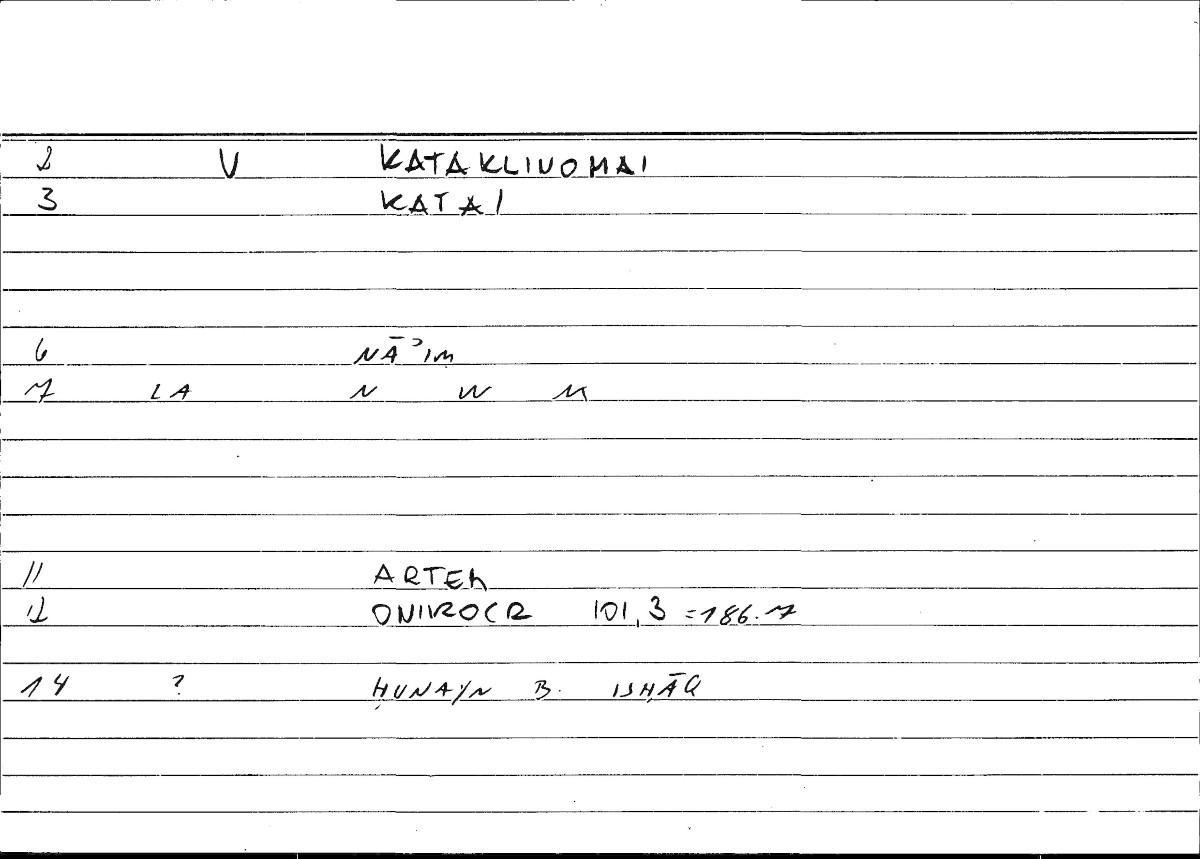 2 V KATAKLINOMAI
3 KATAI
6 NĀʾIM
7 LA N W M
11 ARTEM
12 ONIROCR 101,3 =186.7
14 ? ḤUNAYN B. ISḤĀQ